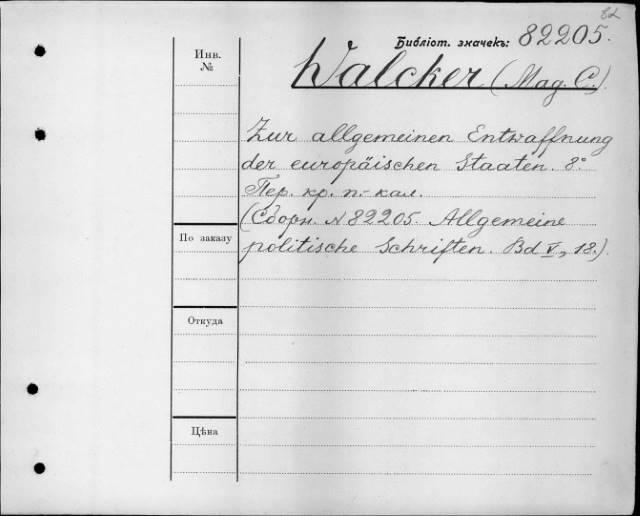 82
Библіот. значекъ: 82205.
Инв. №
Walcker (Mag. C.)
Zur allgemeinen Entwaffnung
der europäischen Staaten. 8°
Пер. кр. п.-кал.
(Сборн. N 82205. Allgemeine
politische Schriften. Bd V, 18.)
По заказу
Откуда
Цѣна